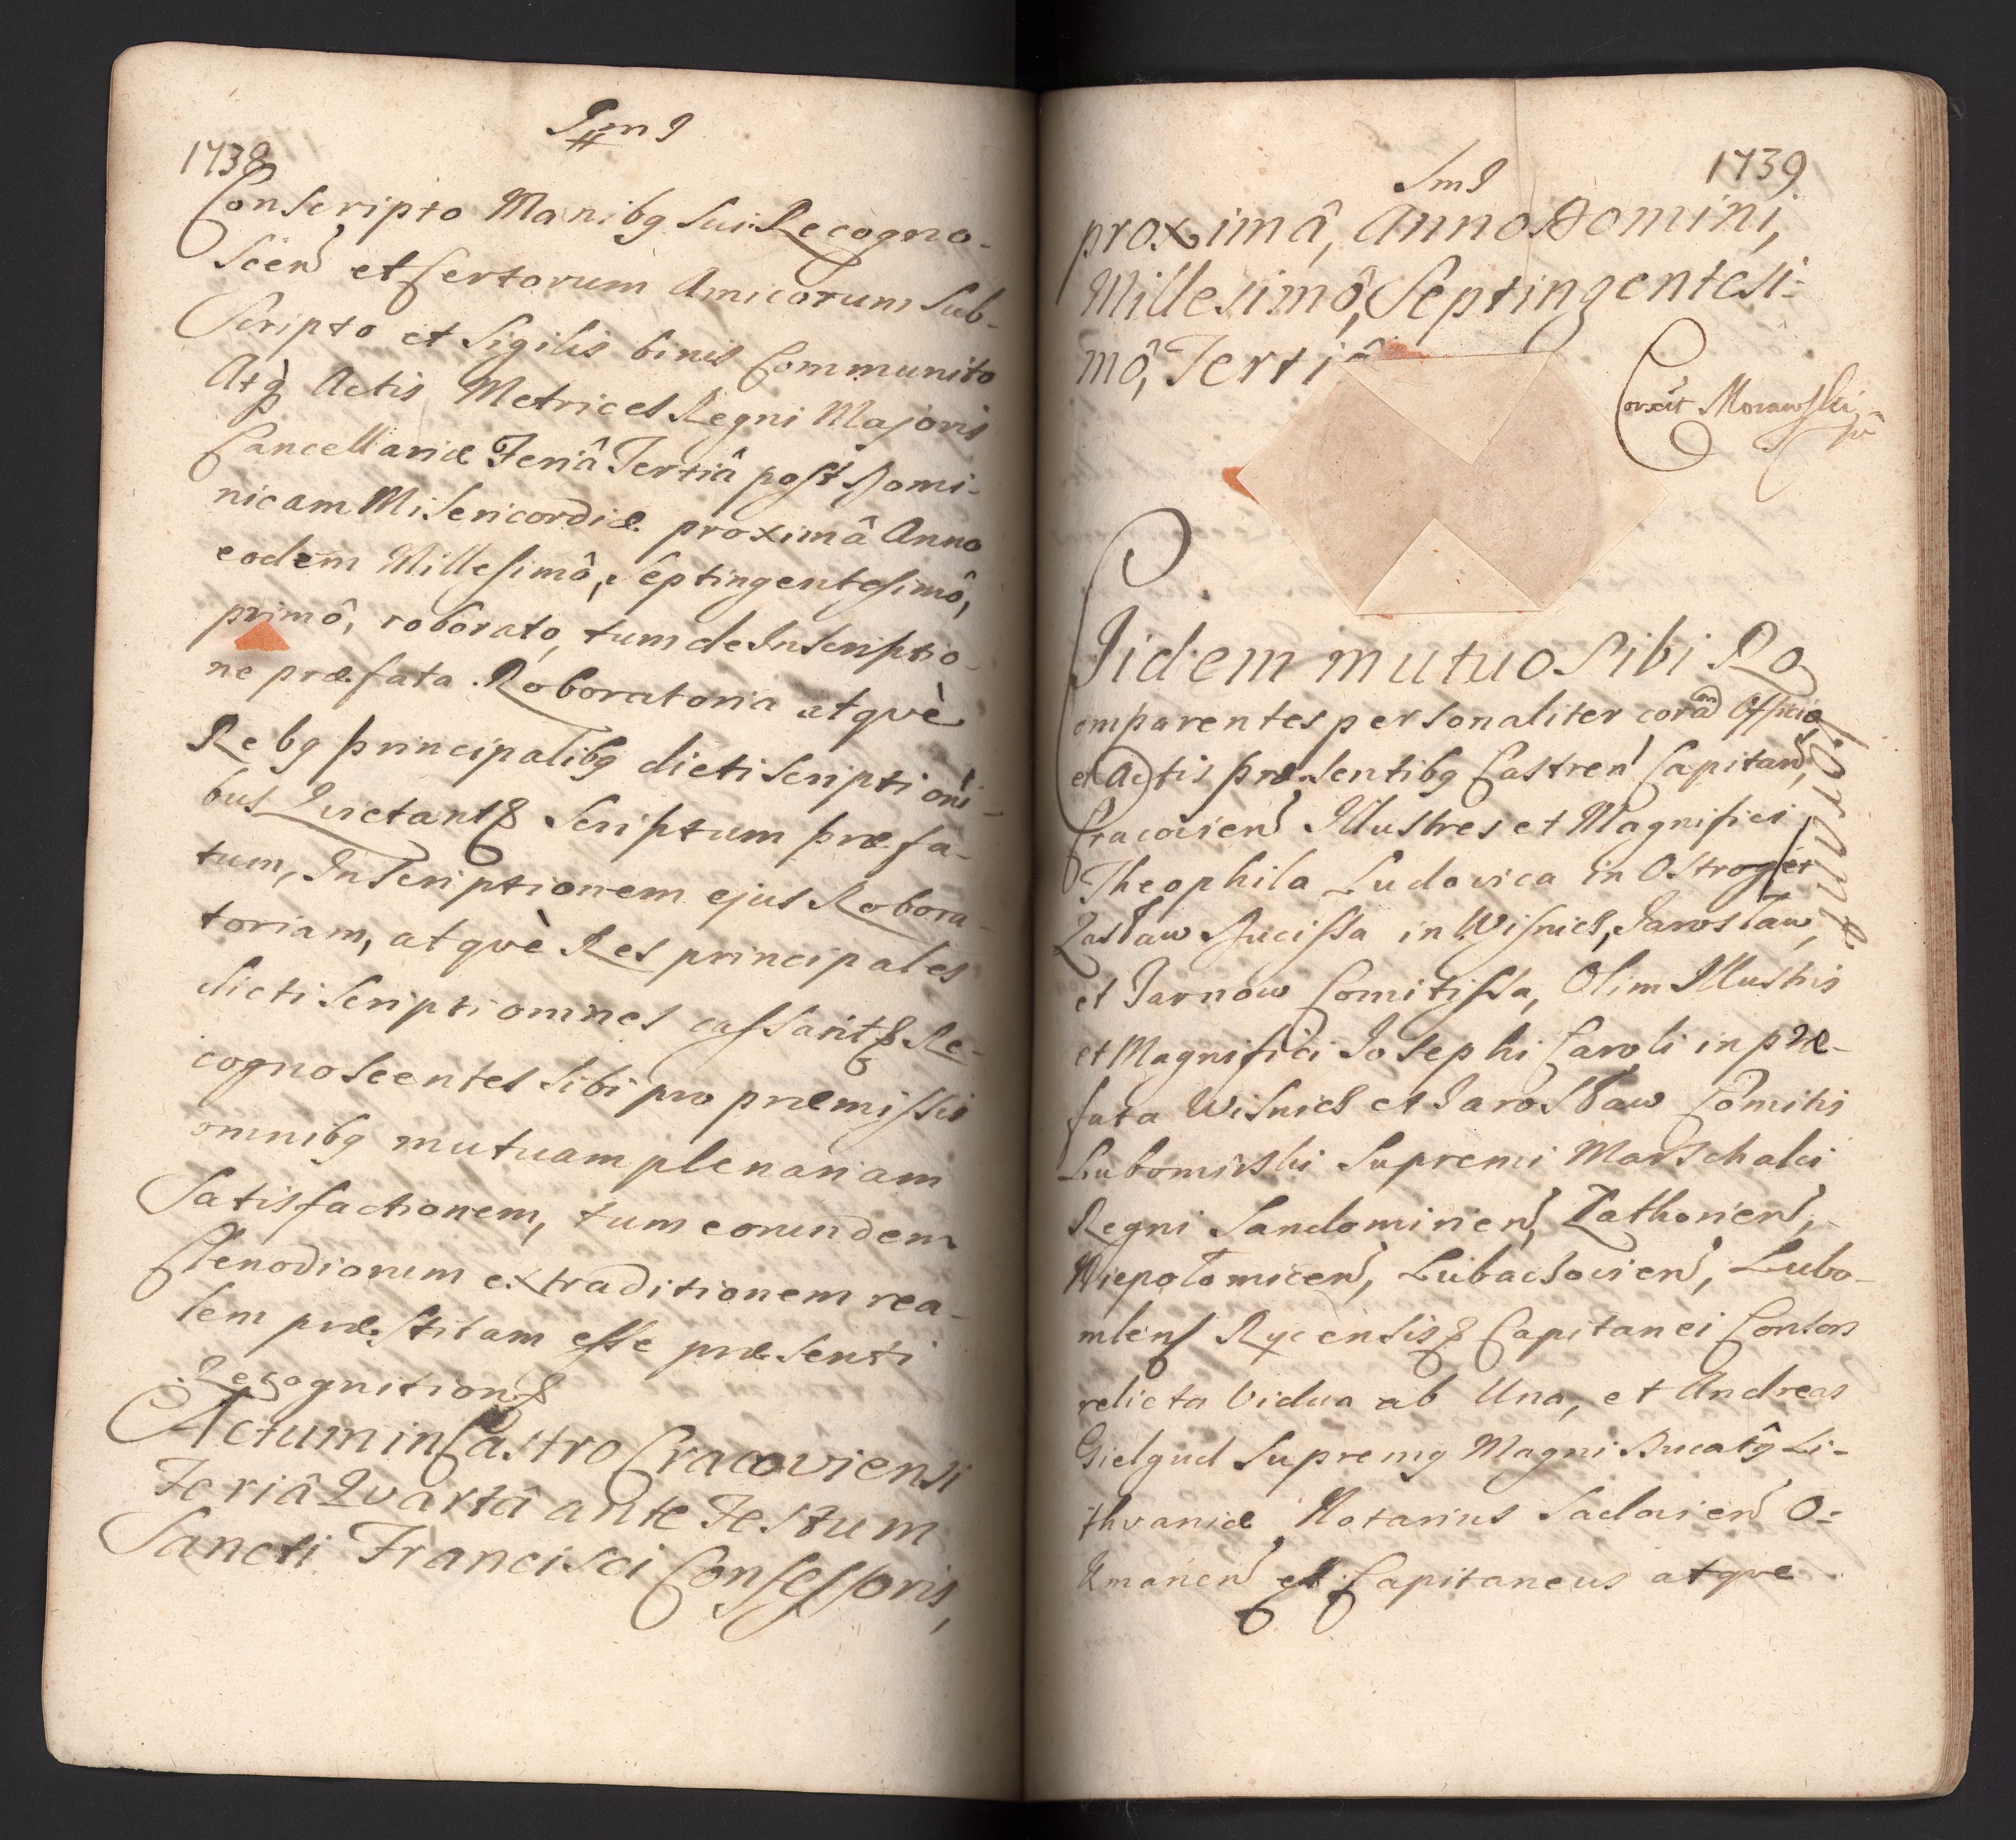 1738
Conscripto Manibq sui Recogno-
scen et Certorum Amicorum sub-
scripto et Sigilis binis Communito
Atq̀ Actis Metrices Regni Majoris
Cancellariæ Feriâ Tertiâ post Domi-
nicam Misericordiæ proximâ Anno
eodem Millesimô, Septingentesimô,
primô, roborato, tum de Inscriptio-
ne præfata Roboratoria atquè
Rebq principalibq dicti scripti omni-
bus Quietant& Scriptum præfa-
tum, Inscriptionem ejus Robora-
toriam, atquè Res principales
dicti scripti omnes cassant& Re-
cognoscentes sibi pro præmissis
omnibq mutuam plenariam
Satisfactionem, tum eorundem
Clenodiorum extraditionem rea-
lem præstitam esse præsenti
Recognition&
Actum in Castro Cracoviensi
Feriâ Quartâ ante Festum
Sancti Francisci Confessoris,
1739
proximâ, Anno Domini,
Millesimô, Septingentesi-
mô, Tertiô
Correxit Morawski
Iidem mutuo sibi Ro
omparentes personaliter coram Officio
et Actis præsentibq Castren Capitan,
Cracovien Illustres et Magnifici
Theophila Ludovica in Ostrog et
Zasław Ducissa in Wisnicz, Jarosław,
et Tarnow Comitissa, Olim Illustris
et Magnifici Josephi Caroli in præ-
fata Wisnicz et Jarosław Comitis
Lubomirski Supremi Marschalci
Regni Sandomirien, Zathorien,
Niepołomicen, Lubaczovien, Lubo-
mlens Rycensis& Capitanei Consors
relicta Vidua ab Una, et Andreas
Gielgud Supremq Magni Ducatq Li-
thvaniæ Notarius Sadovien O-
kmanen et Capitaneus atque